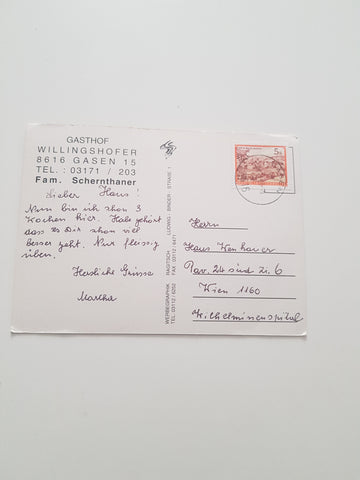 GASTHOF
WILLINGSHOFER
8616 GASEN 15
TEL.: 03171 / 203
Fam. Schernthaner
Lieber Hans!
Nun bin ich schon 3
Wochen hier. Hab gehört
dass es Dir schon viel
besser geht. Nur fleissig
üben.
Herzliche Grüsse
Martha
WERBEGRAPHIK RAGITSCH LUDWIG - BINDER - STRASSE 1
TEL. 03112 / 6252 FAX 03112 / 6471
5 S
Herrn
Hans
Pav. 24 süd Zi. 6
Wien 1160
Wilhelminenspital